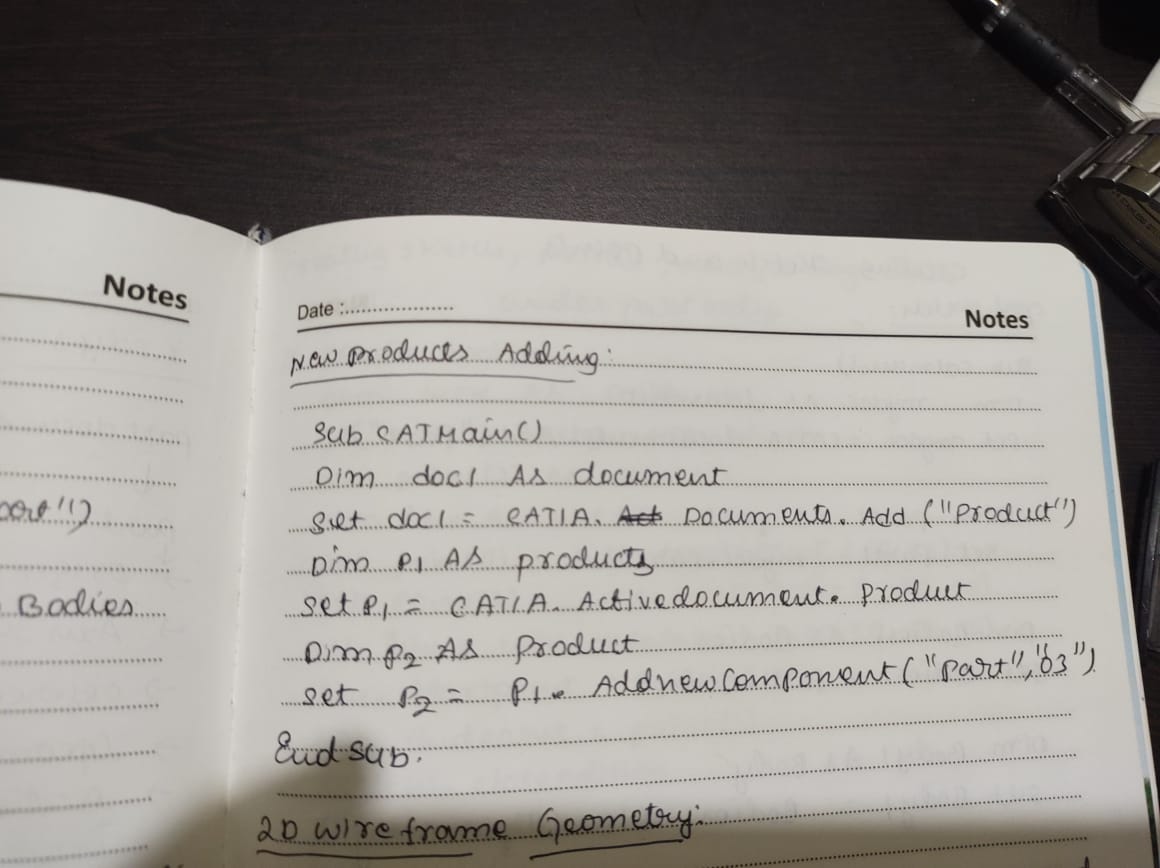 Notes
oart")
Bodies
Date :....................
Notes
New products Adding:
Sub CATMain()
Dim doc1 As document
Set doc1 = CATIA. Act Documents. Add ("Product")
Dim P1 As products
set P1 = CATIA. Activedocument. Product
Dim P2 As Product
set P2 = P1. Addnewcomponent ("part", "03")
End sub.
2D wire frame Geometry: